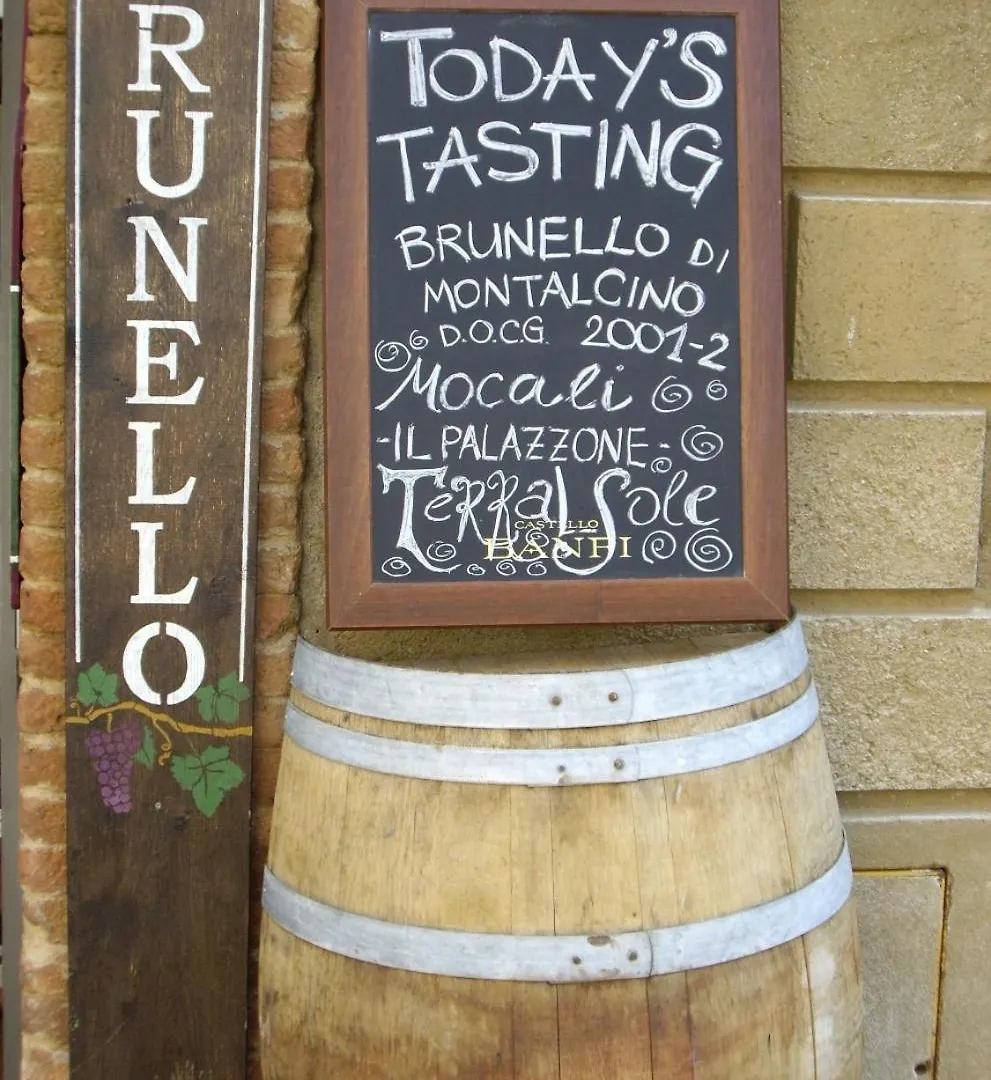 RUNELLO
TODAY'S
TASTING
BRUNELLO DI
MONTALCINO
D.O.C.G. 2001-2
Mocali
-IL PALAZZONE-
TERRALSole
CASTELLO
BANFI